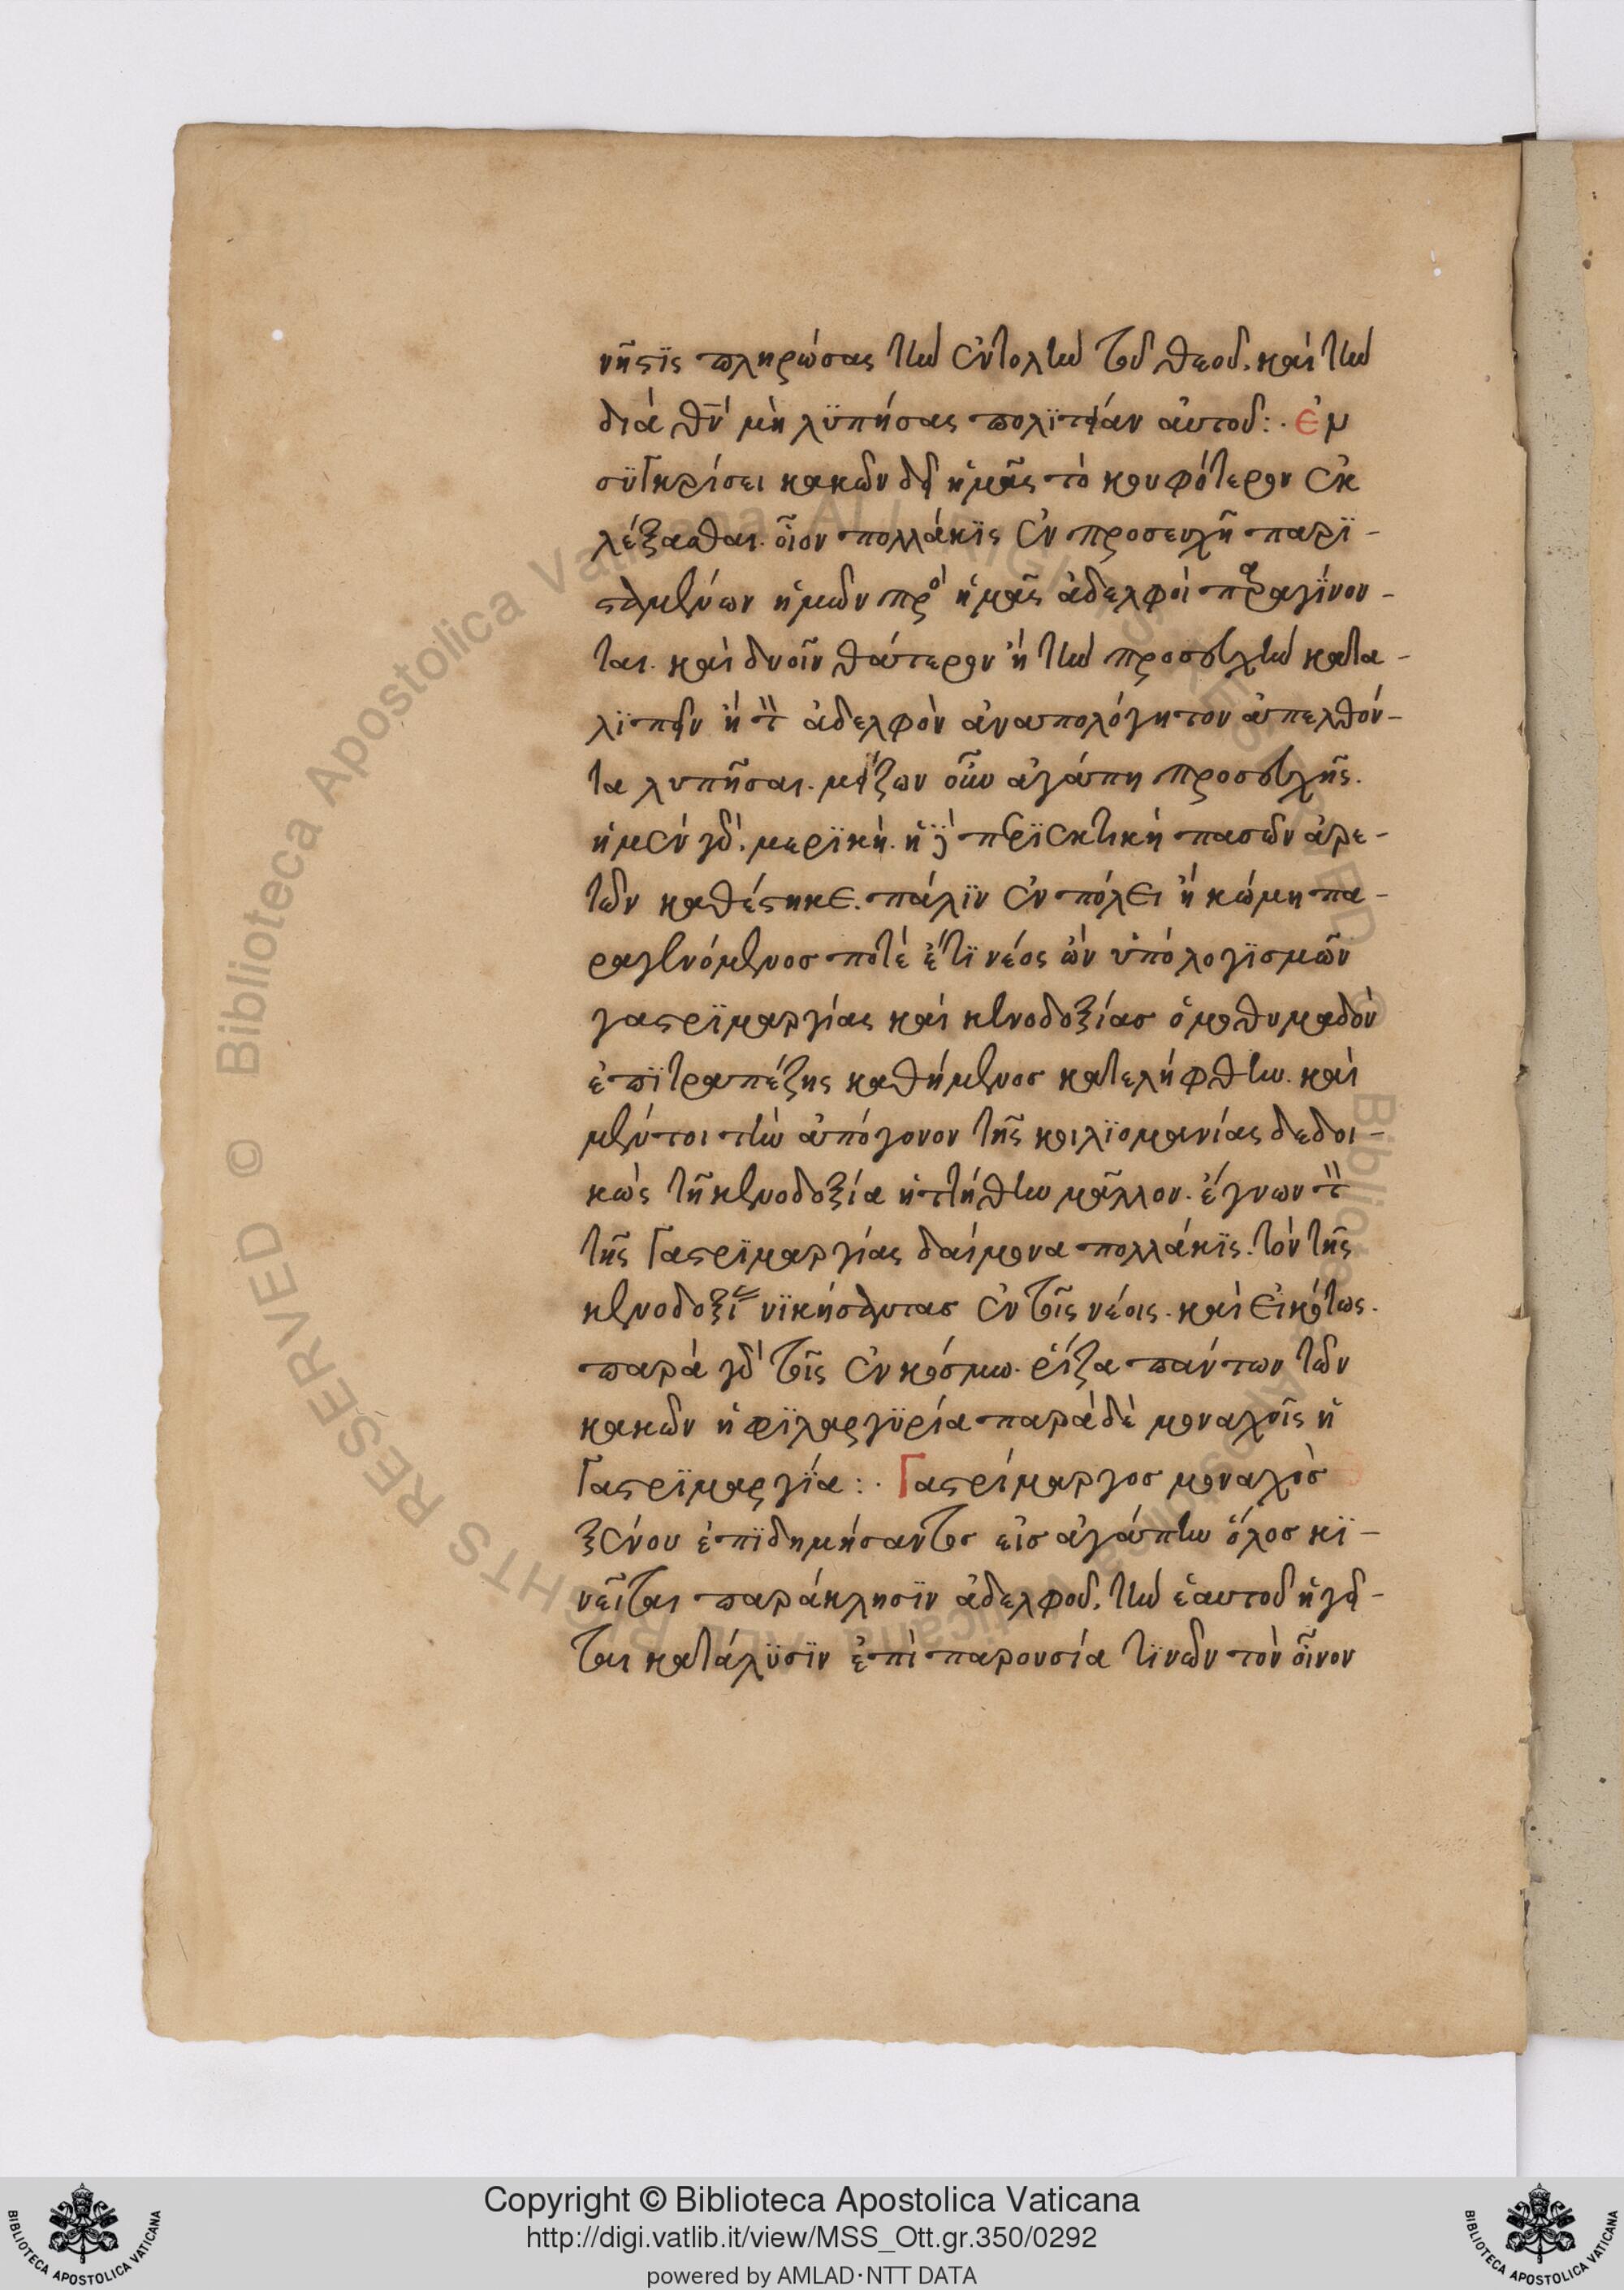 νῆστις πληρώσας τὴν ἐντολὴν τοῦ θεοῦ. καὶ τὴν
διὰ θν̅ μὴ λϋπήσας πολϊτείαν αὐτοῦ:· Ἐν
σϋγκρίσει κακῶν δεῖ ἡμᾶς τὸ κουφότερον ἐκ
λέξασθαι. οἷον πολλάκϊς ἐν προσευχῇ παρϊ-
σταμένων ἡμῶν πρὸ ἡμᾶς ἀδελφοὶ παραγίνον-
ται. καὶ δυοῖν θάτερον ἢ τὴν προσευχὴν κατα-
λϊπεῖν ἢ τὸν ἀδελφὸν ἀναπολόγητον ἀπελθόν-
τα λυπῆσαι. μείζων οὖν ἀγάπη προσευχῆς.
ἡ μὲν γὰρ. μερϊκὴ. ἡ δὲ περϊεκτικὴ πασῶν ἀρε-
τῶν καθέστηκε. πάλϊν ἐν πόλει ἢ κώμη πα-
ραγενόμενος ποτὲ ἔτϊ νέος ὢν ὑπὸ λογϊσμῶν
γαστρϊμαργίας καὶ κενοδοξίας ὁμοθυμαδὸν
ἐπϊ τραπέζης καθήμενος κατελήφθην. καὶ
μέντοι τὴν ἀπόγονον τῆς κοιλϊομανίας δεδοι-
κὼς τῇ κενοδοξία ἡττήθην μᾶλλον. ἔγνων τὸν
τῆς γαστρϊμαργίας δαίμονα πολλάκϊς. τὸν τῆς
κενοδοξίας νϊκήσαντας ἐν τοῖς νέοις. καὶ εἰκότως.
παρὰ γὰρ τοῖς ἐν κόσμω. ῥίζα πάντων τῶν
κακῶν ἡ φϊλαργϋρία παρὰ δὲ μοναχοῖς ἡ
γαστρϊμαργϊα:· Γαστρίμαργος μοναχὸς
ξένου ἐπϊδημήσαντος εἰς ἀγάπην ὅλος κϊ-
νεῖται παράκλησϊν ἀδελφοῦ. τὴν ἑαυτοῦ ἡγεῖ-
ται κατάλϋσϊν ἐπὶ παρουσία τϊνῶν τὸν οἶνον
Copyright © Biblioteca Apostolica Vaticana
http://digi.vatlib.it/view/MSS_Ott.gr.350/0292
powered by AMLAD·NTT DATA
BIBLIOTECA APOSTOLICA VATICANA
BIBLIOTECA APOSTOLICA VATICANA